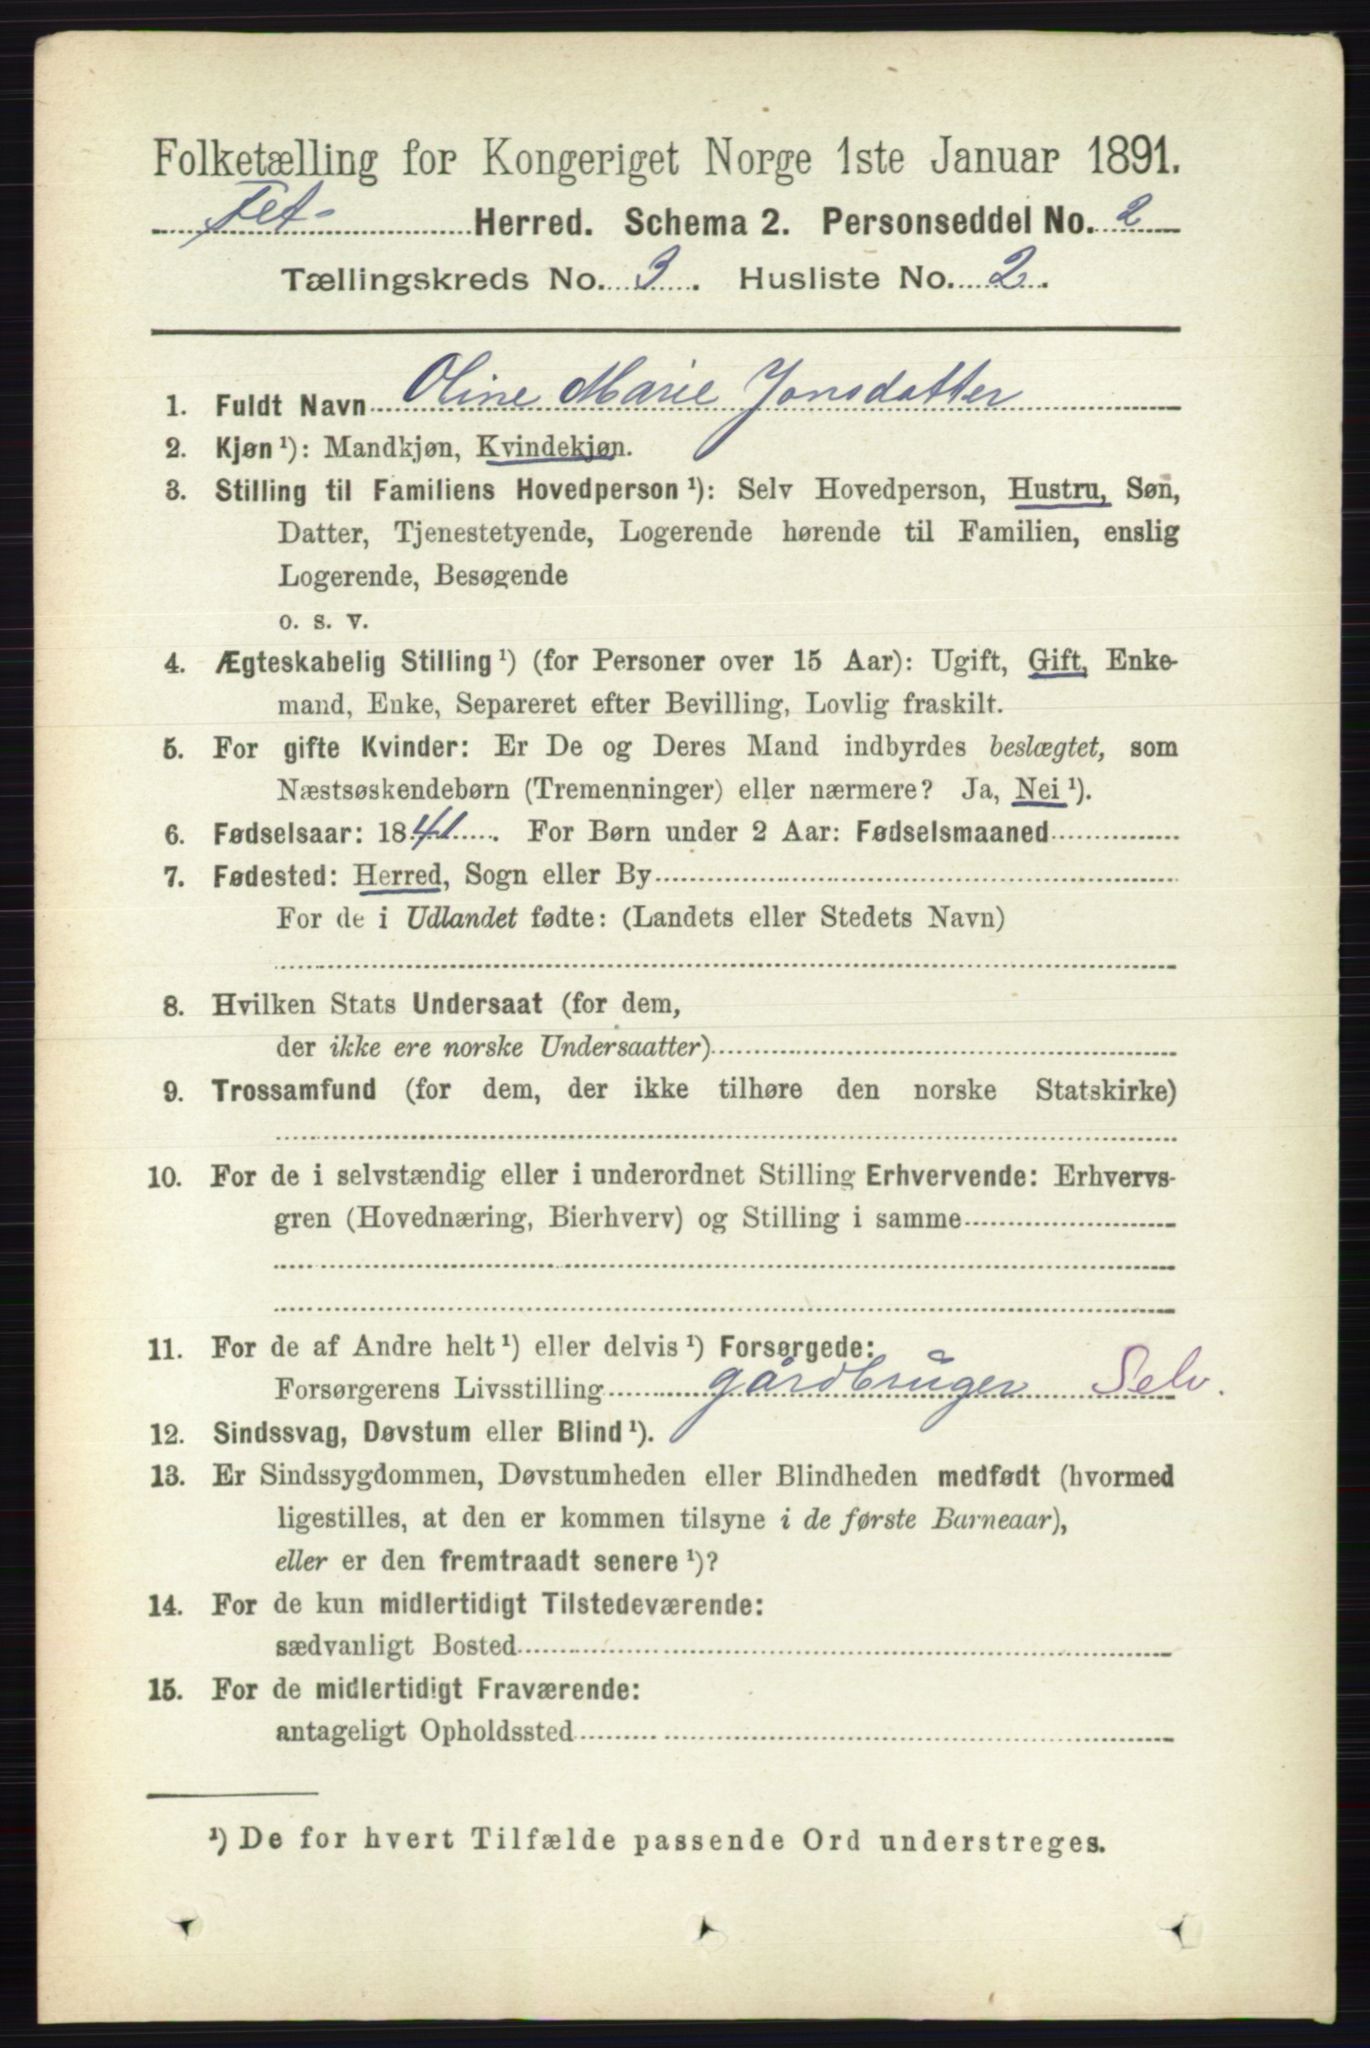 Folketælling for Kongeriget Norge 1ste Januar 1891.
Fet- Herred. Schema 2. Personseddel No. 2
Tællingskreds No. 3. Husliste No. 2.
1. Fuldt Navn Oline Marie Jonsdatter
2. Kjøn ¹): Mandkjøn, Kvindekjøn.
3. Stilling til Familiens Hovedperson ¹): Selv Hovedperson, Hustru, Søn,
Datter, Tjenestetyende, Logerende hørende til Familien, enslig
Logerende, Besøgende
o. s. v.
4. Ægteskabelig Stilling ¹) (for Personer over 15 Aar): Ugift, Gift, Enke-
mand, Enke, Separeret efter Bevilling, Lovlig fraskilt.
5. For gifte Kvinder: Er De og Deres Mand indbyrdes beslægtet, som
Næstsøskendebørn (Tremenninger) eller nærmere? Ja, Nei ¹).
6. Fødselsaar: 1841. For Børn under 2 Aar: Fødselsmaaned
7. Fødested: Herred, Sogn eller By
For de i Udlandet fødte: (Landets eller Stedets Navn)
8. Hvilken Stats Undersaat (for dem,
der ikke ere norske Undersaatter)
9. Trossamfund (for dem, der ikke tilhøre den norske Statskirke)
10. For de i selvstændig eller i underordnet Stilling Erhvervende: Erhvervs-
gren (Hovednæring, Bierhverv) og Stilling i samme
11. For de af Andre helt ¹) eller delvis ¹) Forsørgede:
Forsørgerens Livsstilling gårdbruger Selv.
12. Sindssvag, Døvstum eller Blind ¹).
13. Er Sindssygdommen, Døvstumheden eller Blindheden medfødt (hvormed
ligestilles, at den er kommen tilsyne i de første Barneaar),
eller er den fremtraadt senere ¹)?
14. For de kun midlertidigt Tilstedeværende:
sædvanligt Bosted
15. For de midlertidigt Fraværende:
antageligt Opholdssted
¹) De for hvert Tilfælde passende Ord understreges.